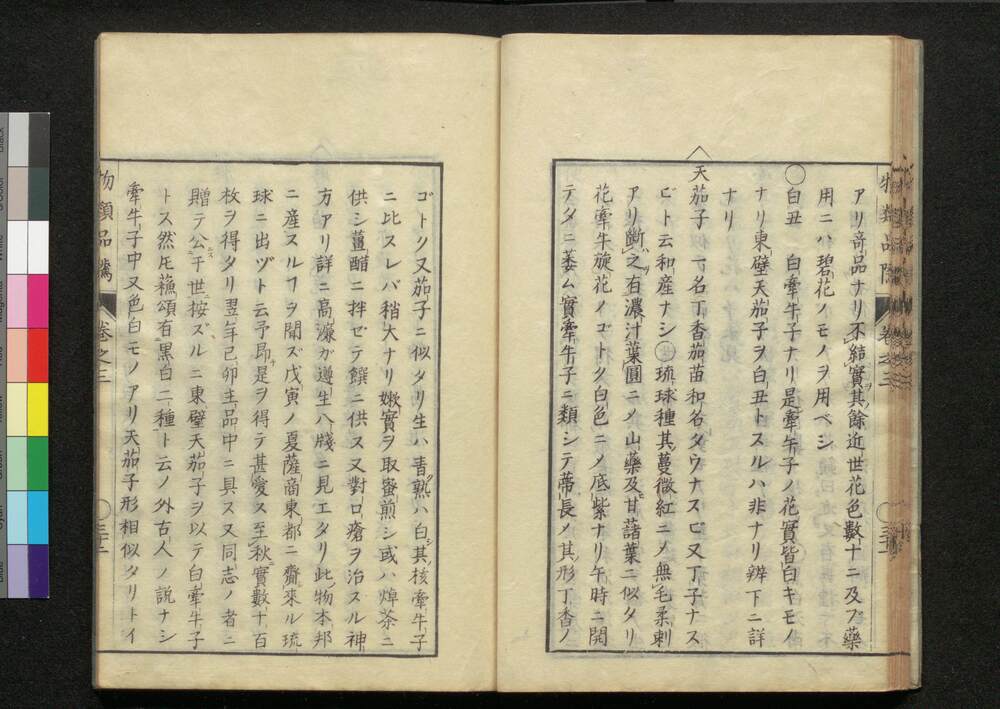 アリ奇品ナリ不結實其餘近世花色數十ニ及ブ藥
用ニハ碧花ノモノヲ用ベシ
〇白丑 白牽牛子ナリ是牽牛子ノ花實皆白キモノ
ナリ東壁天茄子ヲ白丑トスルハ非ナリ辨下ニ詳
ナリ
天茄子 一名丁香茄苗和名タウナスビ又丁子ナス
ビト云和産ナシ〇琉球種其蔓微紅ニメ無毛柔刺
アリ斷之有濃汁葉圓ニメ山藥及甘藷葉ニ似タリ
花牽牛旋花ノゴトク白色ニメ底紫ナリ午時ニ開
テタニ萎ム實牽牛子ニ類シテ蒂長メ其形丁香ノ
物類品隲 卷之三 〇三十二
ゴトク又茄子ニ似タリ生ハ青熟ハ白其核牽牛子
ニ比スレバ稍大ナリ嫩實ヲ取蜜煎シ或ハ焯茶ニ
供シ薑醋ニ拌ゼテ饌ニ供ス又對口瘡ヲ治スル神
方アリ詳ニ高濂ガ遵生八牋ニ見エタリ此物本邦
ニ産スルヿヲ聞ズ戊寅ノ夏薩商東都ニ齎來ル琉
球ニ出ヅト云予昂是ヲ得テ甚愛ス至秋實數十百
枚ヲ得タリ翌年己卯主品中ニ具ス又同志ノ者ニ
贈テ公于世按ズルニ東壁天茄子ヲ以テ白牽牛子
トス然𪜈蘓頌有黒白二種ト云ノ外古人ノ説ナシ
牽牛子中又色白モノアリ天茄子形相似タリトイ
物類品隲 卷之三